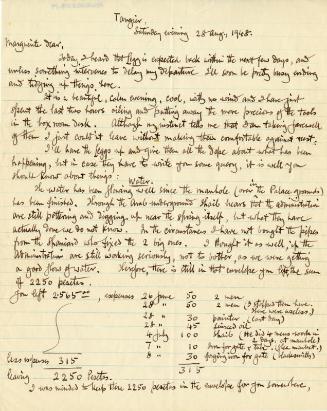 Tangier.
Saturday evening 28 Aug, 1948.
Marguerite dear,
Today I heard that Legg is expected back within the next few days, and
unless something intervenes to delay my departure I'll soon be pretty busy ending
and tidying up things here.
It is a beautiful, calm evening, cool, with no wind and I have just
spent the last two hours oiling and putting away the more precious of the tools
in the box room desk. Although my instinct tells me that I am taking farewell
of them I just could not leave without making them comfortable against rust.
I'll have the Leggs up and give them all the dope about what has been
happening, but in case they have to write you some query, it is well you
should know about things:
Water.
The water has been flowing well since the manhole (over the Palace grounds)
has been finished. Through the Arab underground Shaib hears that the administration
are still pottering and digging up near the spring itself, but what they have
actually done we do not know. In the circumstances I have not bought the pipes
from the who fixed the 2 big ones. I thought it as well, if the
Administration are still working seriously, not to bother, as we were getting
a good flow of water. Therefore, there is still in that envelope you left the sum
of 2250 pesetas.
You left 2565.00 expenses 24 June 50 2 men
28 " 50 2 men (I stopped them here. These were useless)
28 " 30 painter (last day)
28 " 45 linseed oil
4 July 100 Shaib (He did 4 mens work in 2 days, at manhole)
7 " 10 iron for gate, & tube. (flea market.)
8 " 30 forging iron for gate (blacksmith)
Less expenses 315
315
leaving 2250 Pesetas.
I was minded to keep these 2250 pesetas in the envelope for you somewhere,